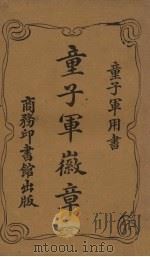 童子軍用書
童子軍徽章
商務印書館出版
www.toutobook.com